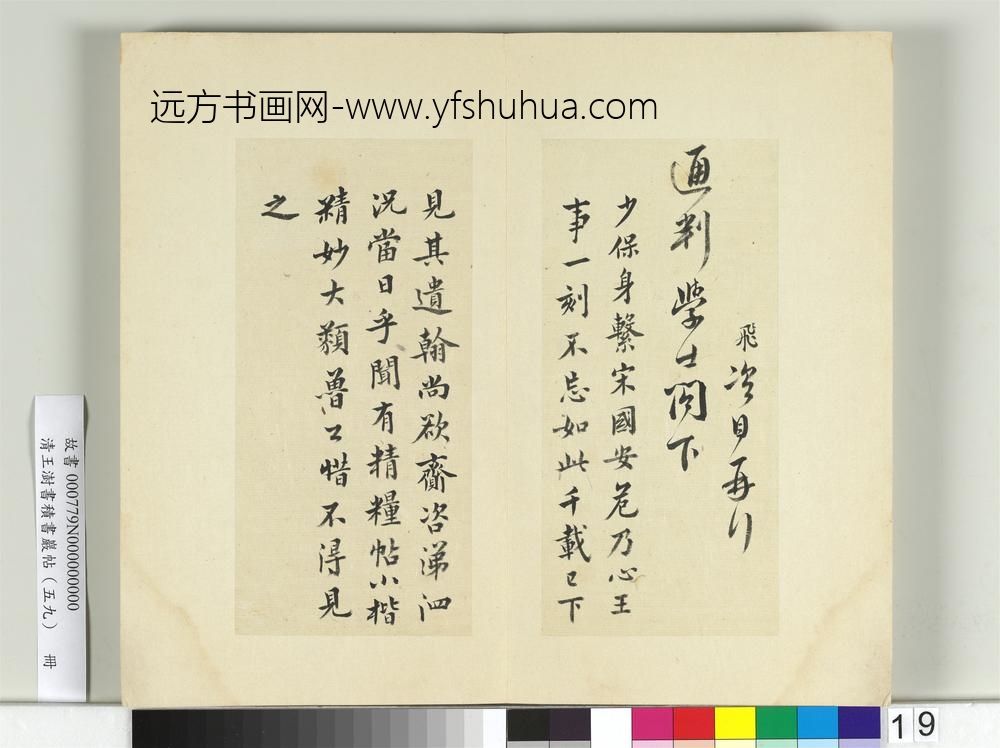 远方书画网-www.yfshuhua.com
飛咨目再拜
通判學士閣下
少保身繫宋國安危乃心王
事一刻不忘如此千載已下
見其遺翰尚欲齎咨涕泗
況當日乎聞有精糧帖小楷
精妙大類魯公惜不得見
之
故書 000779N000000000
清王澍書積書巖帖（五九） 冊
19